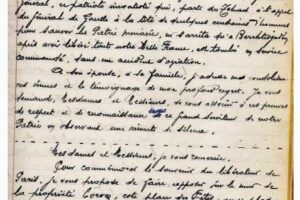 général, ce patriote invétéré qui, parti du Tchad à l'appel
du Général de Gaulle à la tête de quelques centaines d'hommes
pour sauver la Patrie meurtrie, ne s'arrêta qu'à Berchtesgaden
après avoir libéré toute notre Belle France, est tombé en service
commandé, dans un accident d'aviation.
A son épouse, à sa famille, j'adresse nos condoléances
émues et le témoignage de mon profond regret. Je vous
demande, Mesdames et Messieurs, de vous associer à ces pensées
de respect et de reconnaissance envers ce grand Serviteur de notre
Patrie en observant une minute de silence.
Mesdames et Messieurs, je vous remercie.
Pour commémorer le souvenir du libérateur de
Paris, je vous propose de faire apposer sur le mur de
la propriété côté place des Fêtes, une